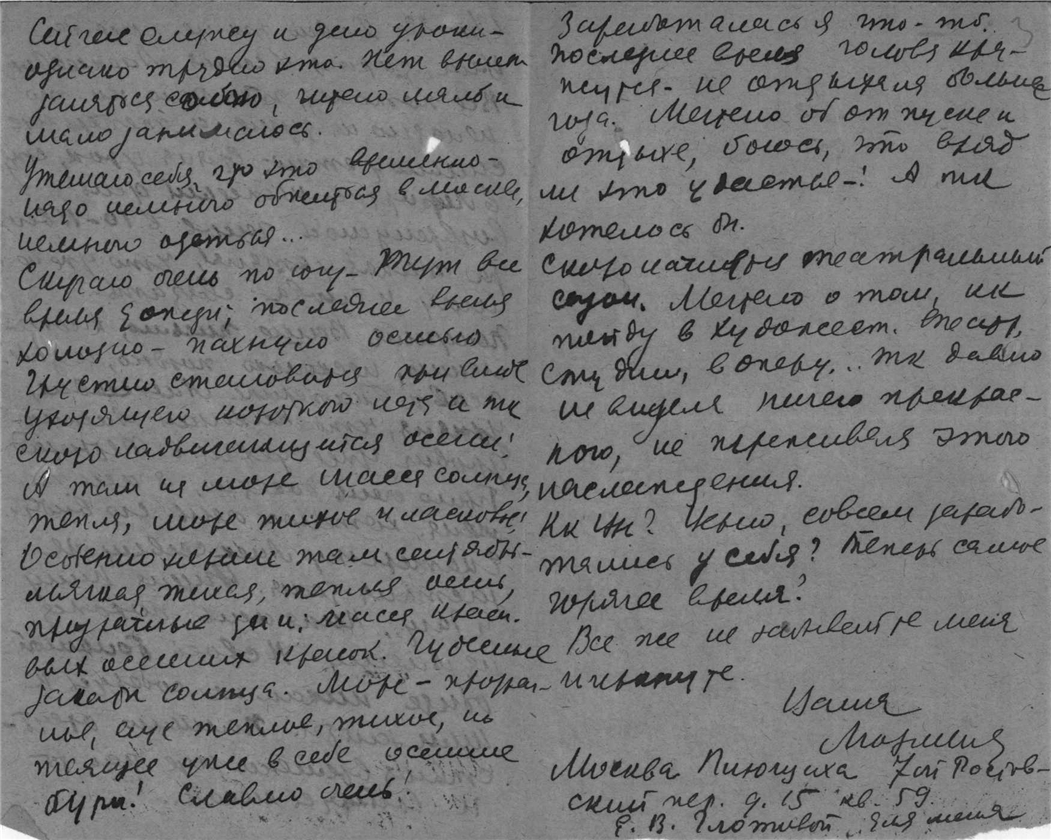 Сейчас служу и даю уроки -
однако трудно это. Нет времени
заняться собою, читаю мало и
мало занималась.
Утешаю себя, что это временно -
надо немного обжиться в Москве,
немного одеться...
Скучаю очень по югу - Тут все
время дожди; последнее время
холодно - пахнуло осенью
Грустно становится при виде
уходящего короткого лета и так
скоро надвигающейся осени!
А там на море масса солнца,
тепла, море тихое и ласковое!
Особенно хорошие там сентябрь -
мягкая тихая, теплая осень,
прозрачные дни; масса краси-
вых осенних красок. Чудесные
закаты солнца. Море - прозрач-
ное, еще теплое, тихое, но
таящее уже в себе осенние
бури! Славно очень!
Заработалась я что-то.
последнее время голова кру-
жится - не отдыхала больше
года. Мечтаю об отпуске и
отдыхе, боюсь, что вряд
ли это удастся -! А так
хотелось бы.
Скоро начнется театральный
сезон. Мечтаю о том, как
пойду в художест. театр,
студии, в оперу... так давно
не видела ничего прекрас-
ного, не переживала этого
наслаждения.
Как Вы? совсем зарабо-
тались у себя? Теперь самое
горячее время?
Все же не забывайте меня
и черкните.
Ваша
Москва Плющиха 7ой Ростов-
ский пер. д. 15 кв. 59.
Е. В. для меня